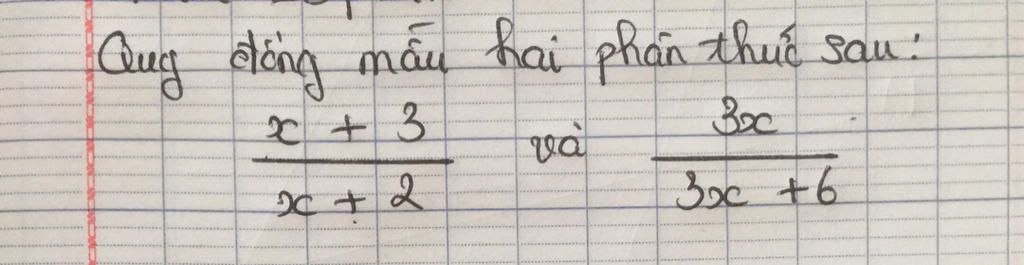 Quy đồng mẫu hai phân thức sau:
x + 3 và 3x
x + 2 3x + 6